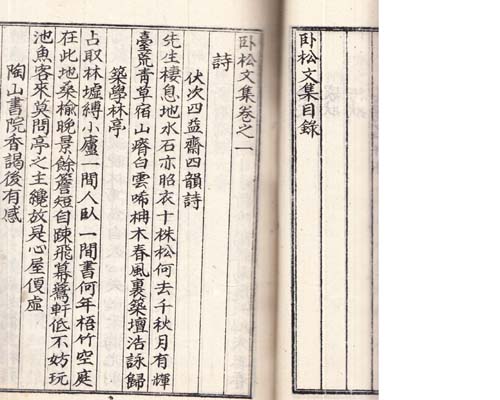 卧松文集目錄
卧松文集卷之一
詩
伏次四益齋四韻詩
先生棲息地水石亦昭衣十株松何去千秋月有輝
臺荒青草宿山瘠白雲唏栴木春風裏築壇浩詠歸
築學林亭
占取林墟縛小廬一間人臥一間書何年梧竹空庭
在此地桑榆晚景餘簷短自踈飛幕鷰軒低不妨玩
池魚客來莫問亭之主纔放是心屋便虛
陶山書院香謁後有感